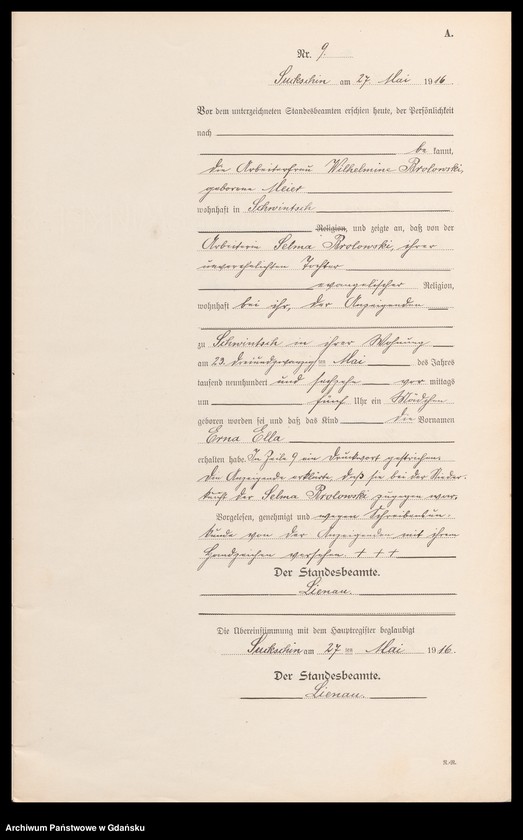 A.
Nr. 9.
Suckschin am 27. Mai 1916.
Vor dem unterzeichneten Standesbeamten erschien heute, der Persönlichkeit
nach
be kannt,
die Arbeiterfrau Wilhelmine Brolowski,
geborene Meier
wohnhaft in Schwintsch
Religion, und zeigte an, daß von der
Arbeiterin Selma Brolowski, ihrer
unverehelichten Tochter
evangelischer Religion,
wohnhaft bei ihr, der Anzeigenden
zu Schwintsch in ihrer Wohnung
am 23. dreiundzwanzigsten Mai des Jahres
tausend neunhundert und sechzehn vor mittags
um fünf Uhr ein Mädchen
geboren worden sei und daß das Kind die Vornamen
Erna Ella
erhalten habe. In Zeile 9 ein Druckwort gestrichen.
Die Anzeigende erklärte, daß sie bei der Nieder-
kunft der Selma Brolowski zugegen war.
Vorgelesen, genehmigt und wegen Schreibensun-
kunde von der Anzeigenden mit ihrem
Handzeichen versehen. + + +
Der Standesbeamte.
Lienau.
Die Übereinstimmung mit dem Hauptregister beglaubigt
Suckschin am 27 ten Mai 1916.
Der Standesbeamte.
Lienau.
Archiwum Państwowe w Gdańsku